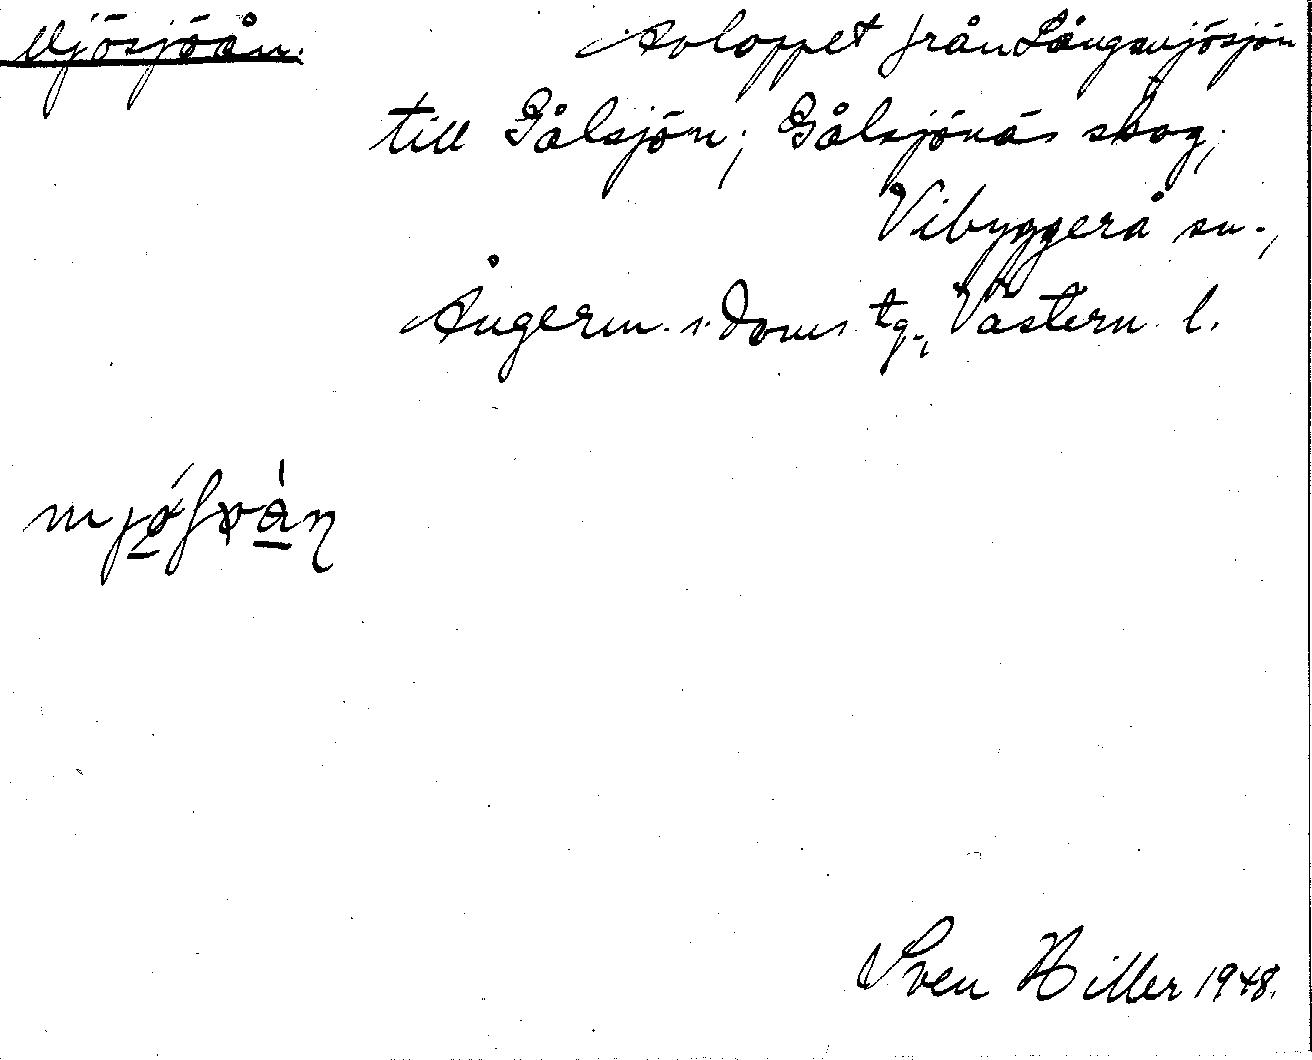 Mjösjöån. Avloppet från Långmjösjön
till Gålsjön; Gålsjönäs skog;
Vibyggerå sn.,
Ångerm. s. doms tg., Västern. l.
Sven Hiller 1948.